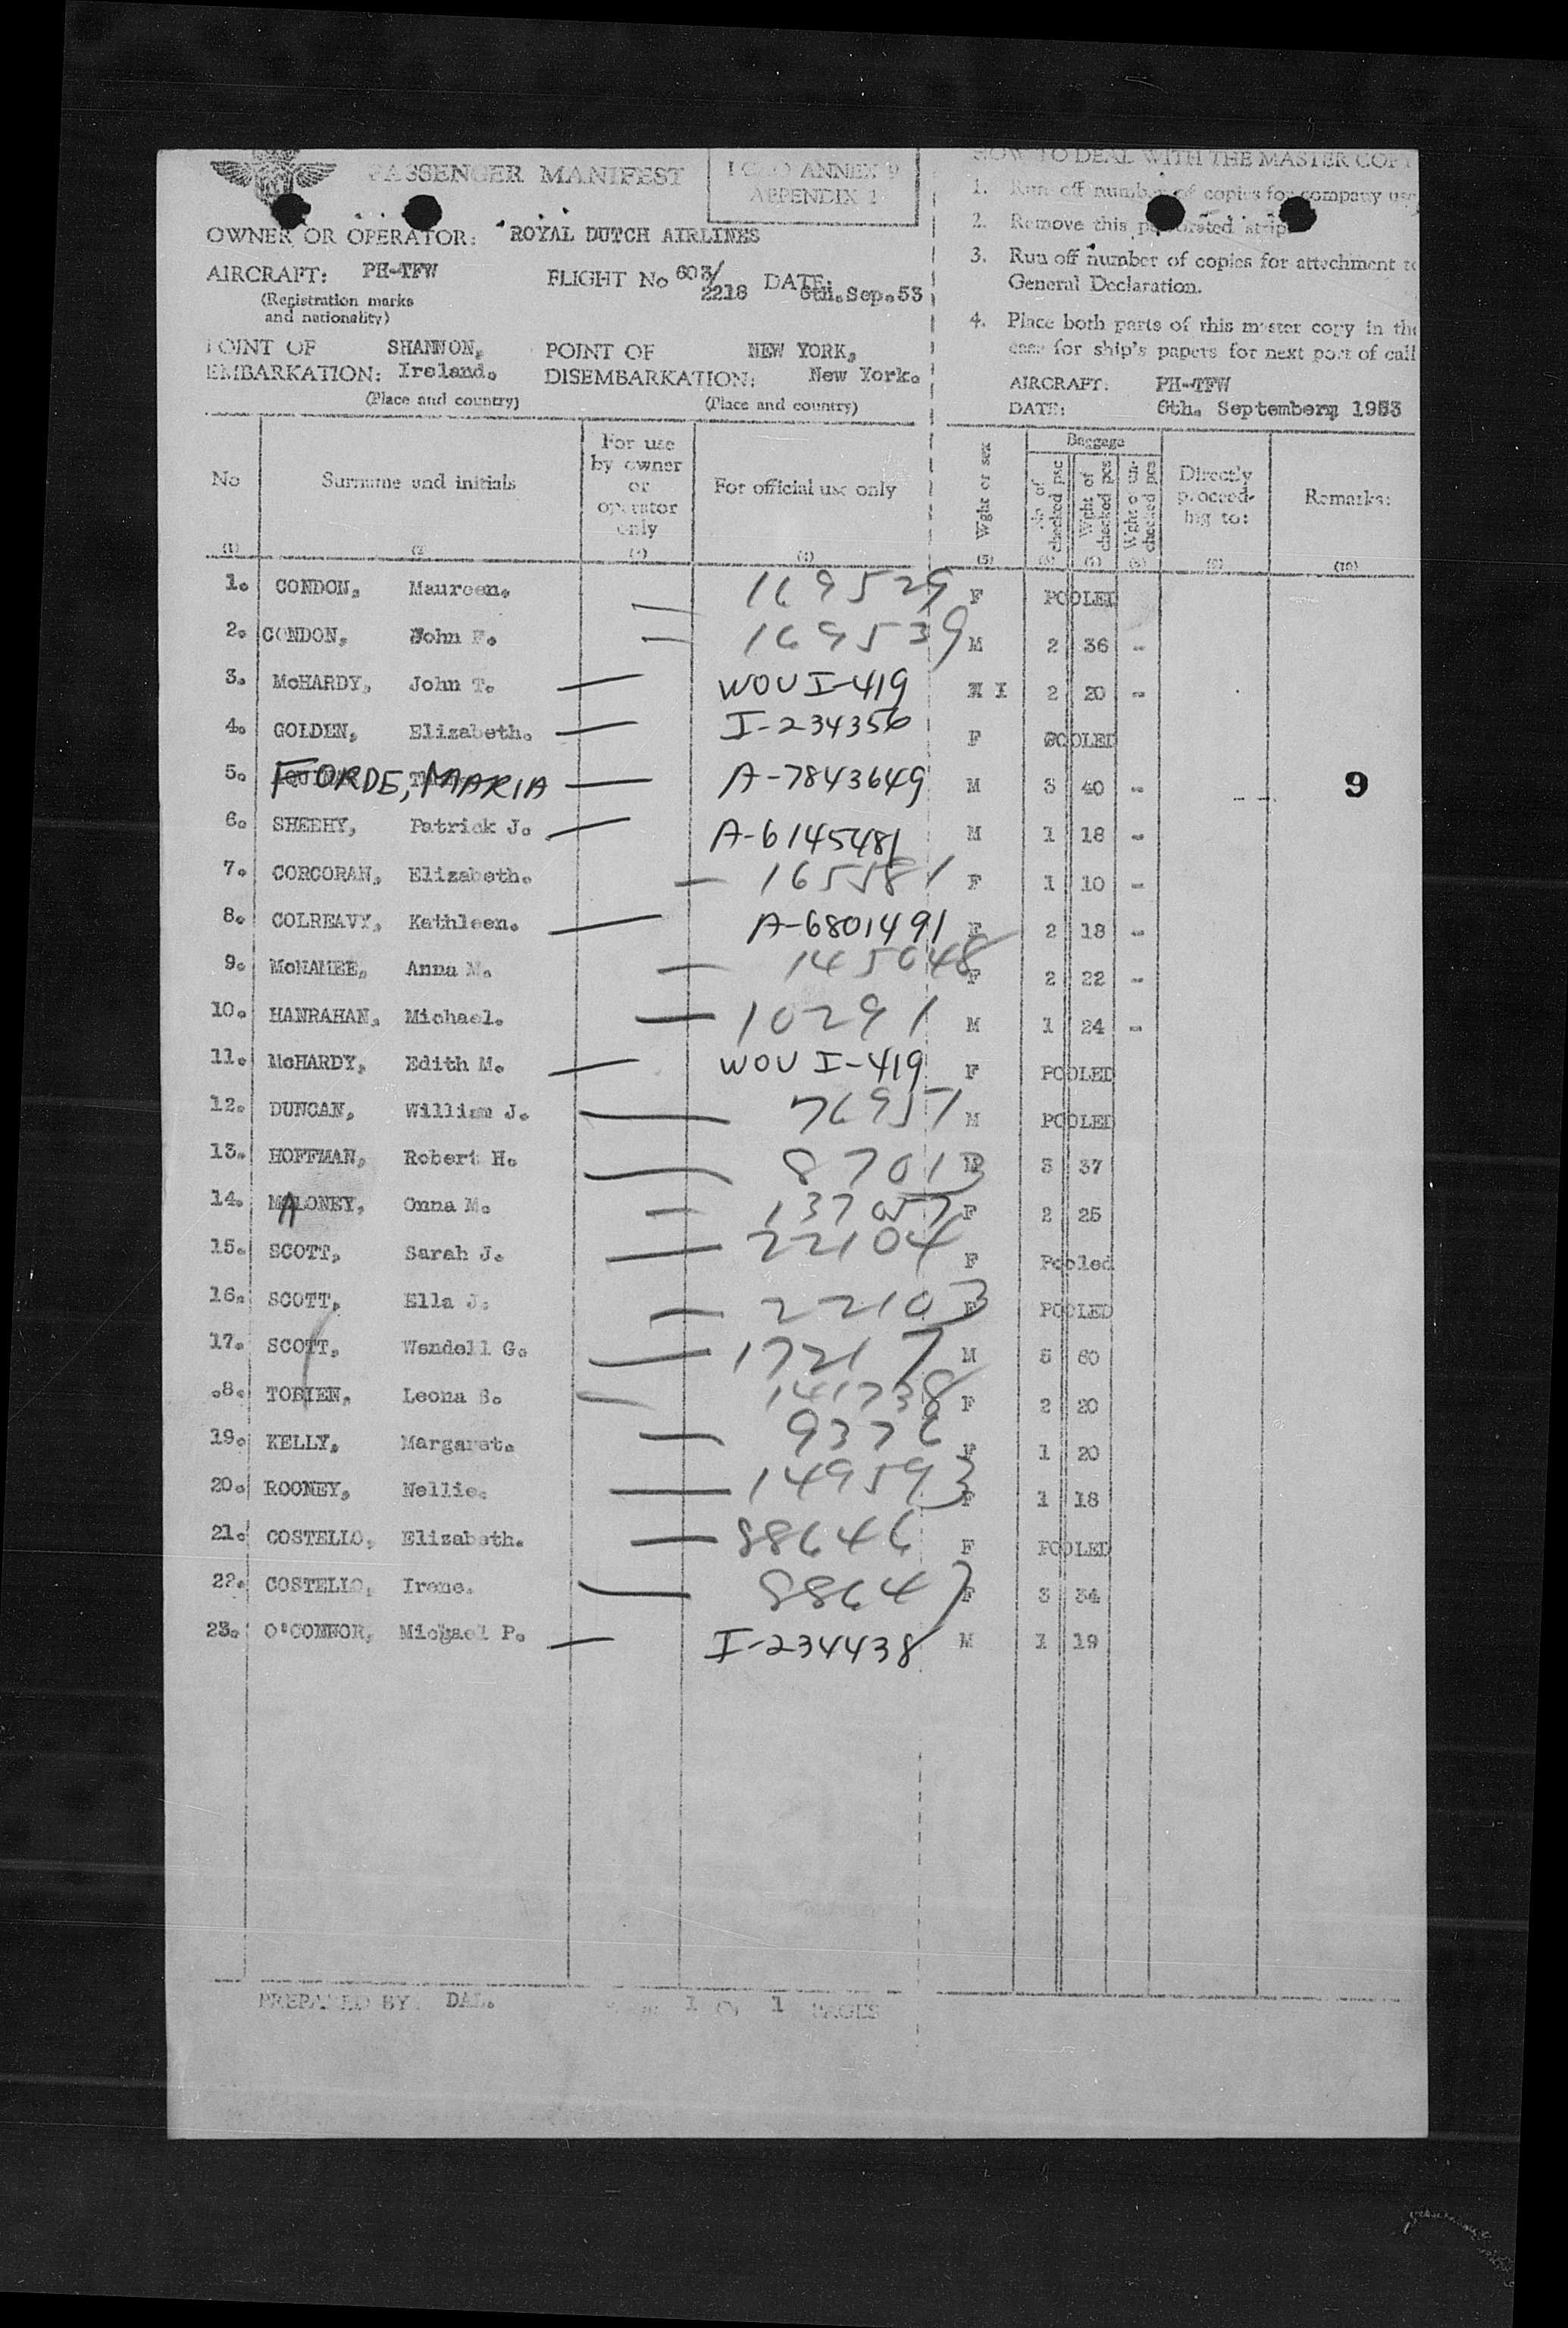 PASSENGER MANIFEST
ICAO ANNEX 9
APPENDIX 2
HOW TO DEAL WITH THE MASTER COPY
1. Run off number of copies for company use
2. Remove this perforated strip
3. Run off number of copies for attachment to
General Declaration.
4. Place both parts of this master copy in the
case for ship's papers for next port of call
OWNER OR OPERATOR: ROYAL DUTCH AIRLINES
AIRCRAFT: PH-TFW
(Registration marks
and nationality)
FLIGHT No 603/
2218
DATE: 6th. Sep. 53
POINT OF
EMBARKATION: SHANNON,
Ireland.
(Place and country)
POINT OF
DISEMBARKATION: NEW YORK,
New York.
(Place and country)
AIRCRAFT: PH-TFW
DATE: 6th. September, 1953
No
(1)
Surname and initials
(2
For use
by owner
or
operator
only
(3)
For official use only
(4)
Wght or sex
(5)
Baggage
No of
checked pcs
(6)
Wght of
checked pcs
(7)
Wght of un-
checked pcs
(8)
Directly
proceed-
ing to:
(9)
Remarks:
(10)
1. CONDON, Maureen. — 169529 F POOLED
2. CONDON, John F. — 169539 M 2 36 -
3. McHARDY, John T. — WOU I-419 M I 2 20 -
4. GOLDEN, Elizabeth. — I-234356 F POOLED
5. FORDE, MARIA — A-7843649 M 3 40 - 9
6. SHEEHY, Patrick J. — A-6145481 M 1 18 -
7. CORCORAN, Elizabeth. — 165581 F 1 10 -
8. COLREAVY, Kathleen. — A-6801491 F 2 18 -
9. McNAMEE, Anna M. — 145048 F 2 22 -
10. HANRAHAN, Michael. — 10291 M 1 24 -
11. McHARDY, Edith M. — WOU I-419 F POOLED
12. DUNCAN, William J. — 76957 M POOLED
13. HOFFMAN, Robert H. — 87013 M 3 37
14. MALONEY, Onna M. — 137057 F 2 25
15. SCOTT, Sarah J. — 22104 F Pooled
16. SCOTT, Ella J. — 22103 F POOLED
17. SCOTT, Wendell G. — 172167 M 5 60
8. TOBIEN, Leona S. — 141738 F 2 20
19. KELLY, Margaret. — 9376 F 1 20
20. ROONEY, Nellie. — 149593 F 1 18
21. COSTELLO, Elizabeth. — 88646 F POOLED
22. COSTELLO, Irene. — 88647 F 3 34
23. O'CONNOR, Michael P. — I-234438 M 1 19
PREPARED BY: DAL.
1 OF 1 PAGES